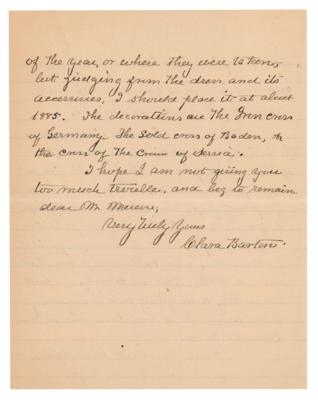 of the year, or where they were taken,
but judging from the dress and its
accessories, I should place it at about
1885. The decorations are The Iron cross
of Germany. The Gold cross of Baden, &
the cross of The Crown of Servia.
I hope I am not giving you
too much trouble, and beg to remain
dear Mr.
Very Truly Yours
Clara Barton.